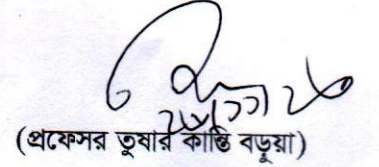 (প্রফেসর তুষার কান্তি বড়ুয়া)